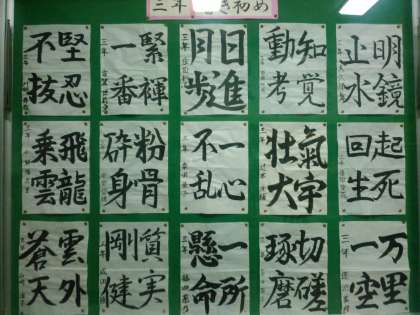 三年 き初め
明鏡
止水
知覚
動考
日進
月歩
緊褌
一番
堅忍
不抜
起死
回生
氣宇
壮大
一心
不乱
粉骨
砕身
飛龍
乗雲
万里
一空
切磋
琢磨
一所
懸命
質実
剛健
雲外
蒼天